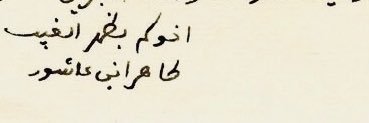 اخوكم بظهر الغيب
طاهر ابن عاشور